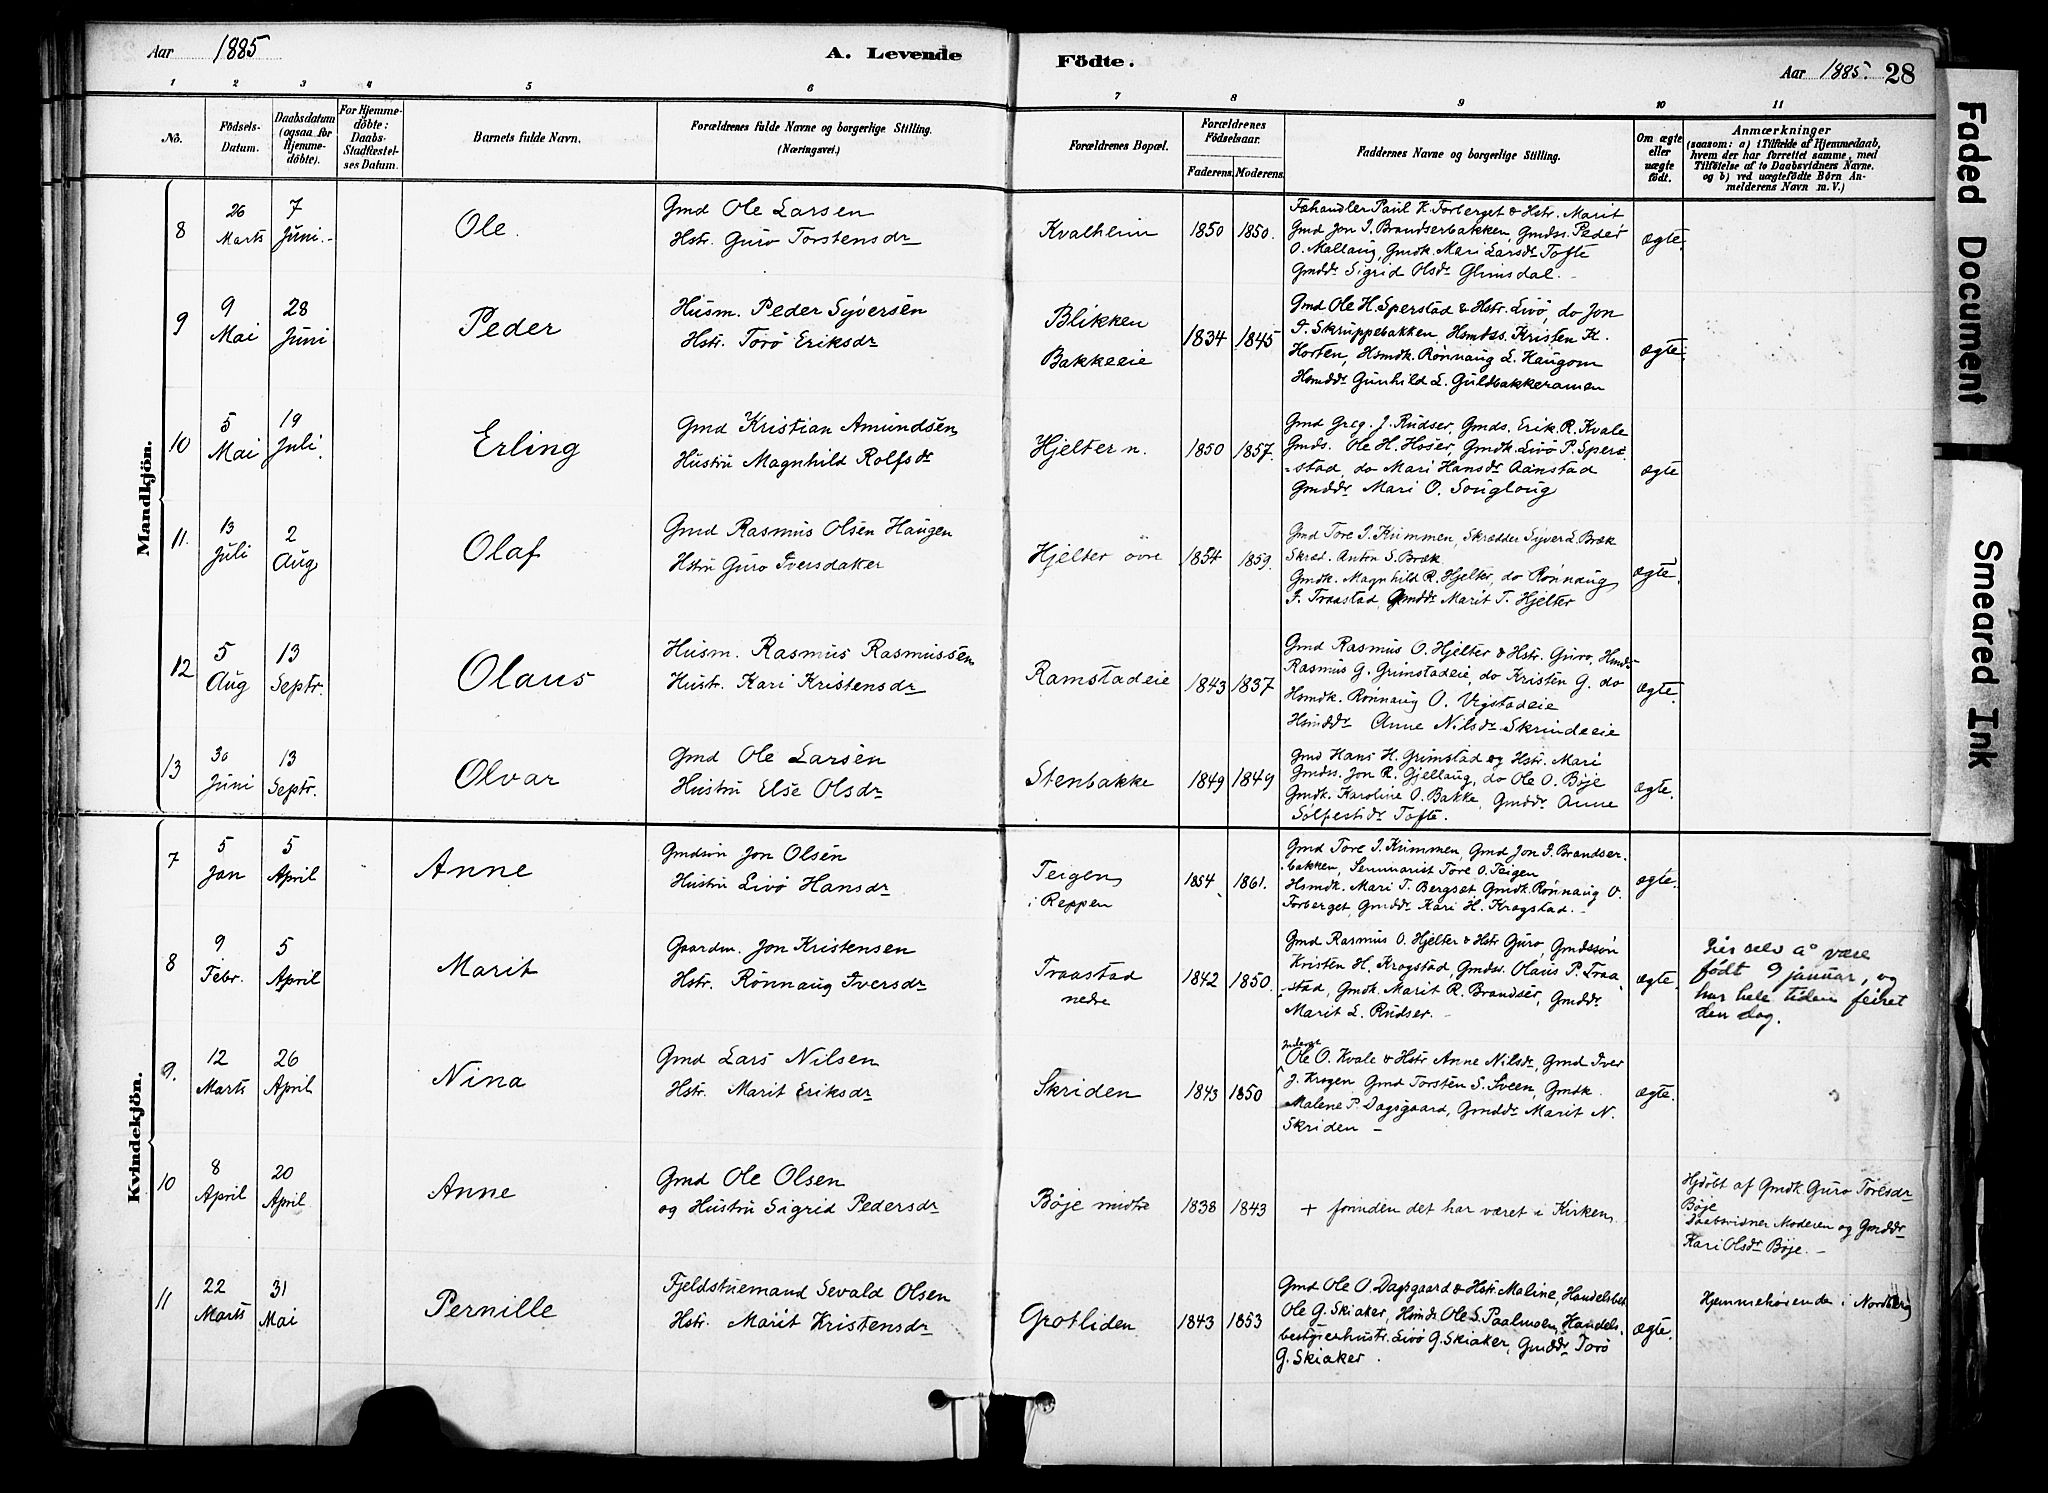 Aar 1885
A. Levende Födte.
Aar 1885. 28
1 2 3 4 5 6 7 8 9 10 11
No.
Födsels-Datum.
Daabsdatum (ogsaa for Hjemme-döbte).
For Hjemme-döbte: Daabs-Stadfæstel-ses Datum.
Barnets fulde Navn.
Forældrenes fulde Navne og borgerlige Stilling.
(Næringsvei.)
Forældrenes Bopæl.
Forældrenes Födselsaar.
Faderens. Moderens.
Faddernes Navne og borgerlige Stilling.
Om ægte eller uægte födt.
Anmærkninger
(saasom: a) i Tilfælde af Hjemmedaab,
hvem der har forrettet samme, med
Tilföielse af to Daabsvidners Navne.
og b) ved uægtefödte Børn An-
melderens Navn m. V.)
Mandkjön.
8 26 Marts 7 Juni.
Ole.
Gmd Ole Larsen
Hstr. Guro Torstensdr
Kvalheim 1850 1850.
Føhandler Paul K. Forberget & Hstr. Marit
Gmd Jon I. Brandserbakken, Gmdss. Peder
O. Mallaug, Gmdk. Mari Larsdr Tofte
Gmddr Sigrid Olsdr Glimsdal.
ægte.
9 9 Mai 28 Juni
Peder
Husm. Peder Syversen
Hstr. Torö Eriksdr
Blikken
Bakkeeie
1834 1845
Gmd Ole H. Sperstad & Hstr. Livö, do Jon
I. Skruppebakken, Hsmdss. Kristen K.
Horten, Hsmdk. Rönnaug L. Haugom
Hsmddr Gunhild L. Guldbakkeramen
ægte.
10 5 Mai 19 Juli.
Erling
Gmd Kristian Amundsen
Hustru Magnhild Rolfsdr
Hjelter n. 1850 1857.
Gmd Greg. J. Rudser, Gmds. Erik R. Kvale
Gmds. Ole H. Hoser, Gmdk. Livö P. Sper-
-stad, do Mari Hansdr Aanstad
Gmddr Mari O. Sougloug
ægte
11. 13 Juli 2 Aug
Olaf
Gmd Rasmus Olsen Haugen
Hstru Guro Iversdaker
Hjelter övre 1854 1859.
Gmd Tore I. Kummen, Skrædder Syver L. Bræk
Skræd. Anton S. Bræk
Gmdk. Magnhild R. Hjelter, do Rönnaug
I. Traastad, Gmddr Marit T. Hjelter
ægte.
12 5 Aug 13 Septr.
Olaus
Husm. Rasmus Rasmussen
Hustr. Kari Kristensdr
Ramstadeie 1843 1837
Gmd Rasmus O. Hjelter & Hstr. Guro, Hmds
Rasmus G. Grimstadeie, do Kristen G. do
Hsmdk. Rönnaug O. Vigstadeie
Hsmddr Anne Nilsdr Skrindeeie
ægte.
13 30 Juni 13 Septr.
Olvar
Gmd Ole Larsen
Hustru Else Olsdr
Stenbakke 1849 1849
Gmd Hans H. Grimstad og Hstr. Mari
Gmdss. Jon R. Gjellaug, do Ole O. Bøje
Gmdk. Karoline O. Bakke, Gmddr Anne
Solfestdr Tofte.
ægte.
Kvindekjön.
7 5 Jan 5 April
Anne
Gmdsön Jon Olsen
Hustru Livö Hansdr
Teigen
i Reppen
1854 1861.
Gmd Tore I. Kummen, Gmd Jon I. Brandser-
bakken, Seminarist Tore O. Teigen
Hsmdk. Mari T. Bergset Gmdk. Rönnaug O.
Forberget, Gmddr Kari H. Krogstad.
ægte.
8 9 Febr. 5 April
Marit
Gaardm. Jon Kristensen
Hstr. Rönnaug Iversdr
Traastad
nedre
1842 1850.
Gmd Rasmus O. Hjelter & Hstr Guro, Gmdssön
Kristen H. Krogstad, Gmdss. Olaus P. Traa-
-stad, Gmdk. Marit R. Brandser, Gmddr
Marit L. Rudser.
ægte.
sier selv å være
født 9 januar, og
har hele tiden feiret
den dag.
9. 12 Marts 26 April
Nina
Gmd Lars Nilsen
Hstr. Marit Eriksdr
Skriden 1843 1850
Ole O. Kvale & Hstr Anne Nilsdr, Gmd Iver
J. Krogen Gmd Torsten S. Sveen, Gmdk.
Malene P. Dagsgaard, Gmddr Marit N.
Skriden
ægte.
10 8 April 20 April
Anne
Gmd Ole Olsen
og Hustru Sigrid Pedersdr
Bøje midtre 1838 1843
+ forinden det har været i Kirken
Hjdöbt af Gmdk. Guro Toresdr
Bøje
Daabsvidner Moderen og Gmddr
Kari Olsdr Bøje.
11 22 Marts 31 Mai
Pernille
Fjeldstuemand Sevald Olsen
Hstr. Marit Kristensdr
Grotliden 1843 1853
Gmd Ole O. Dagsgaard & Hstr. Maline, Handelsbet
Ole G. Skiaker, Hsmds Ole S. Paalmoen, Handels-
bestyrerhustr. Livö G. Skiaker, Gmddr Torö
G. Skiaker.
ægte.
Hjemmehörende i Nordberg
Faded Document
Smeared Ink